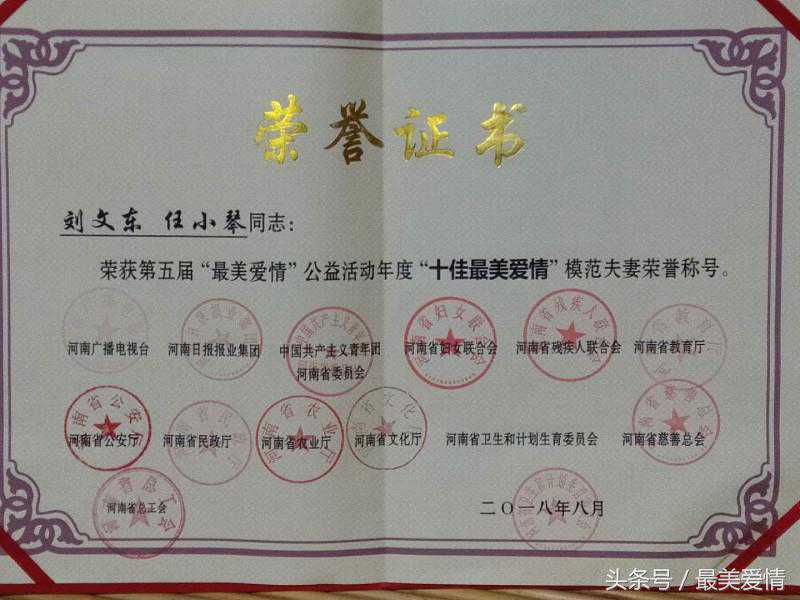 荣誉证书
刘文东 任小琴同志：
荣获第五届“最美爱情”公益活动年度“十佳最美爱情”模范夫妻荣誉称号。
河南广播电视台 河南日报报业集团 中国共产主义青年团 河南省妇女联合会 河南省残疾人联合会 河南省教育厅
河南省委员会
河南省公安厅 河南省民政厅 河南省农业厅 河南省文化厅 河南省卫生和计划生育委员会 河南省慈善总会
河南省总工会
二〇一八年八月
头条号 / 最美爱情